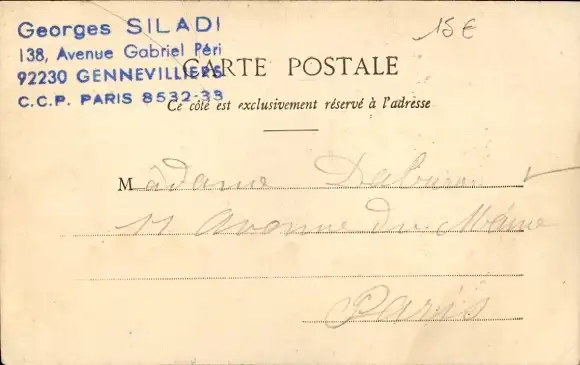 Georges SILADI
138, Avenue Gabriel Péri
92230 GENNEVILLIERS
C.C.P. PARIS 8532-33
15€
CARTE POSTALE
Ce côté est exclusivement réservé à l'adresse
Madame
11 Avenue du Maine
Paris